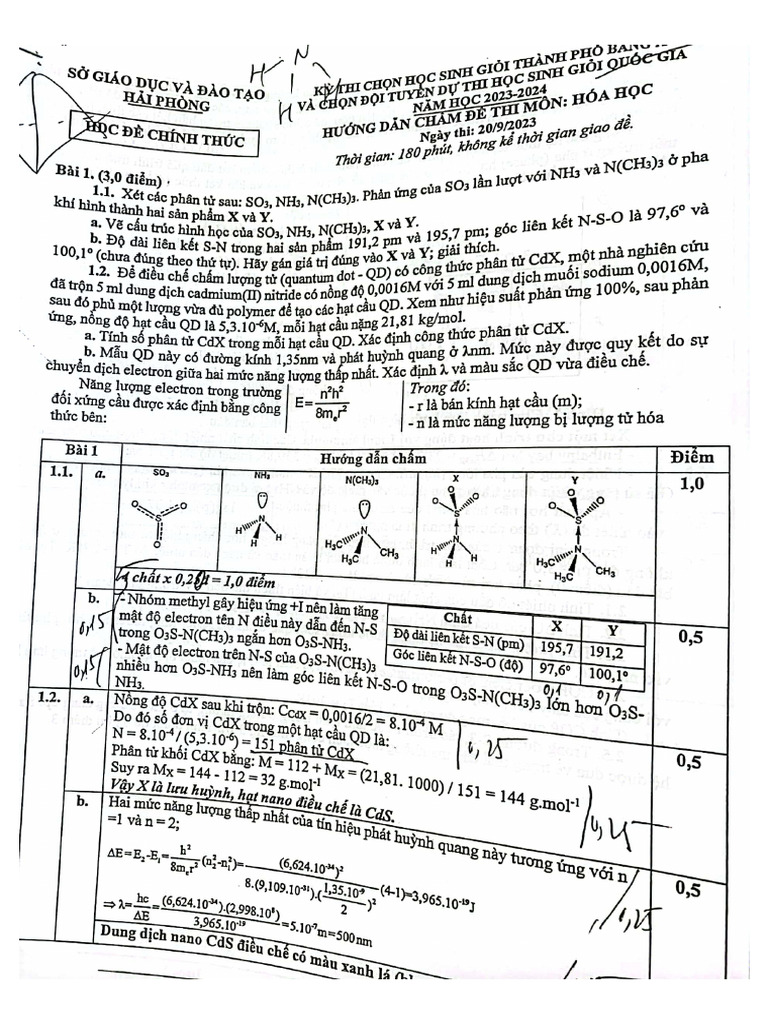 SỞ GIÁO DỤC VÀ ĐÀO TẠO
HẢI PHÒNG
HỌC ĐỀ CHÍNH THỨC
H N
H
KỲ THI CHỌN HỌC SINH GIỎI THÀNH PHỐ BẢNG
VÀ CHỌN ĐỘI TUYỂN DỰ THI HỌC SINH GIỎI QUỐC GIA
NĂM HỌC 2023-2024
HƯỚNG DẪN CHẤM ĐỀ THI MÔN: HÓA HỌC
Ngày thi: 20/9/2023
Thời gian: 180 phút, không kể thời gian giao đề.
Bài 1. (3,0 điểm)
1.1. Xét các phân tử sau: SO₃, NH₃, N(CH₃)₃. Phản ứng của SO₃ lần lượt với NH₃ và N(CH₃)₃ ở pha
khí hình thành hai sản phẩm X và Y.
a. Vẽ cấu trúc hình học của SO₃, NH₃, N(CH₃)₃, X và Y.
b. Độ dài liên kết S-N trong hai sản phẩm 191,2 pm và 195,7 pm; góc liên kết N-S-O là 97,6° và
100,1° (chưa đúng theo thứ tự). Hãy gán giá trị đúng vào X và Y; giải thích.
1.2. Để điều chế chấm lượng tử (quantum dot - QD) có công thức phân tử CdX, một nhà nghiên cứu
đã trộn 5 ml dung dịch cadmium(II) nitride có nồng độ 0,0016M với 5 ml dung dịch muối sodium 0,0016M,
sau đó phủ một lượng vừa đủ polymer để tạo các hạt cầu QD. Xem như hiệu suất phản ứng 100%, sau phản
ứng, nồng độ hạt cầu QD là 5,3.10⁻⁶M, mỗi hạt cầu nặng 21,81 kg/mol.
a. Tính số phân tử CdX trong mỗi hạt cầu QD. Xác định công thức phân tử CdX.
b. Mẫu QD này có đường kính 1,35nm và phát huỳnh quang ở λnm. Mức này được quy kết do sự
chuyển dịch electron giữa hai mức năng lượng thấp nhất. Xác định λ và màu sắc QD vừa điều chế.
Năng lượng electron trong trường
đối xứng cầu được xác định bằng công
thức bên:
E= n²h² / 8mₑr²
Trong đó:
- r là bán kính hạt cầu (m);
- n là mức năng lượng bị lượng tử hóa
Bài 1 Hướng dẫn chấm Điểm
1.1. a. SO₃ NH₃ N(CH₃)₃ X Y 1,0
O S O O
H N H H
H₃C N CH₃ H₃C
O O S O H N H H
O O S O H₃C N CH₃ H₃C
4 chất x 0,25đ = 1,0 điểm
b. - Nhóm methyl gây hiệu ứng +I nên làm tăng
mật độ electron tên N điều này dẫn đến N-S
trong O₃S-N(CH₃)₃ ngắn hơn O₃S-NH₃.
- Mật độ electron trên N-S của O₃S-N(CH₃)₃
nhiều hơn O₃S-NH₃ nên làm góc liên kết N-S-O trong O₃S-N(CH₃)₃ lớn hơn O₃S-
NH₃.
Chất X Y
Độ dài liên kết S-N (pm) 195,7 191,2
Góc liên kết N-S-O (độ) 97,6° 100,1°
0,5
0,15
0,15
0,1 0,1
1.2. a. Nồng độ CdX sau khi trộn: C_CdX = 0,0016/2 = 8.10⁻⁴ M
Do đó số đơn vị CdX trong một hạt cầu QD là:
N = 8.10⁻⁴/ (5,3.10⁻⁶) = 151 phân tử CdX
Phân tử khối CdX bằng: M = 112 + Mx = (21,81. 1000) / 151 = 144 g.mol⁻¹
Suy ra Mx = 144 - 112 = 32 g.mol⁻¹
Vậy X là lưu huỳnh, hạt nano điều chế là CdS.
0,5
0,25
0,25
b. Hai mức năng lượng thấp nhất của tín hiệu phát huỳnh quang này tương ứng với n
=1 và n = 2;
ΔE=E₂-E₁= h²/8mₑr² (n₂²-n₁²)= (6,624.10⁻³⁴)² / 8.(9,109.10⁻³¹).(1,35.10⁻⁹/2)² (4-1)=3,965.10⁻¹⁹J
⇒ λ= hc/ΔE = (6,624.10⁻³⁴).(2,998.10⁸) / 3,965.10⁻¹⁹ =5.10⁻⁷m=500nm
Dung dịch nano CdS điều chế có màu xanh lá
0,5
0,25